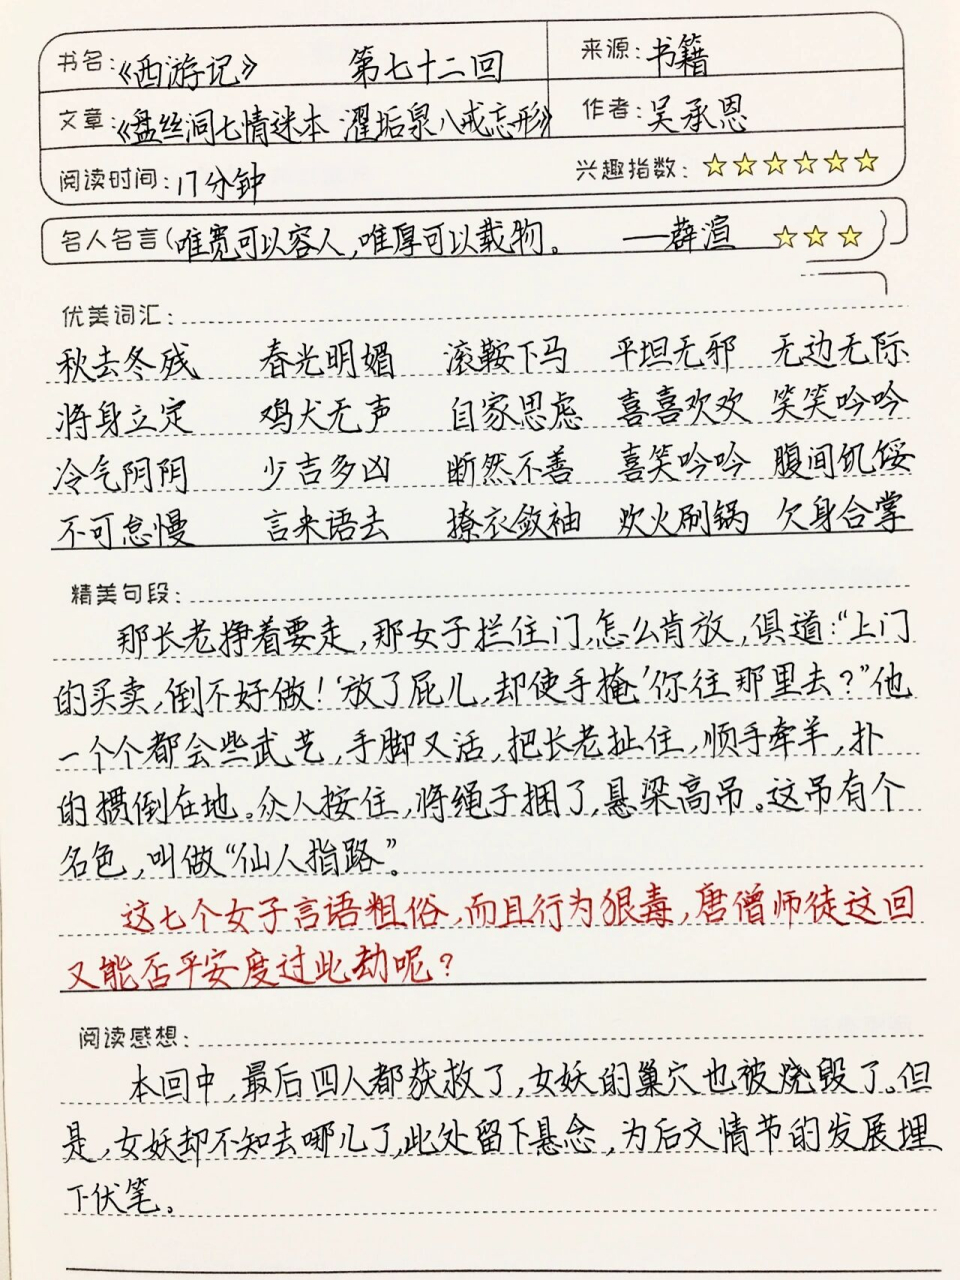 书名:《西游记》 第七十二回 来源:书籍
文章:《盘丝洞七情迷本 濯垢泉八戒忘形》 作者:吴承恩
阅读时间:17分钟 兴趣指数:☆☆☆☆☆☆
名人名言(唯宽可以容人,唯厚可以载物。 ——薛渲 ☆☆☆
优美词汇:
秋去冬残 春光明媚 滚鞍下马 平坦无邪 无边无际
将身立定 鸡犬无声 自家思虑 喜喜欢欢 笑笑吟吟
冷气阴阴 少吉多凶 断然不善 喜笑吟吟 腹间饥馁
不可怠慢 言来语去 撩衣敛袖 炊火刷锅 欠身合掌
精美句段:
那长老挣着要走,那女子拦住门,怎么肯放,俱道:“上门
的买卖,倒不好做!‘放了屁儿,却使手掩’你往那里去?”他
一个个都会些武艺,手脚又活,把长老扯住,顺手牵羊,扑
的掼倒在地。众人按住,将绳子捆了,悬梁高吊。这吊有个
名色,叫做“仙人指路”。
这七个女子言语粗俗,而且行为狠毒,唐僧师徒这回
又能否平安度过此劫呢?
阅读感想:
本回中,最后四人都获救了,女妖的巢穴也被烧毁了。但
是,女妖却不知去哪儿了,此处留下悬念,为后文情节的发展埋
下伏笔。